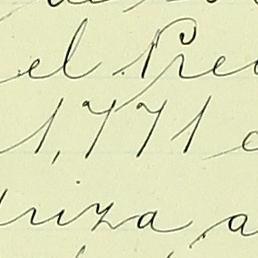 el Pre
1,771
riza, a